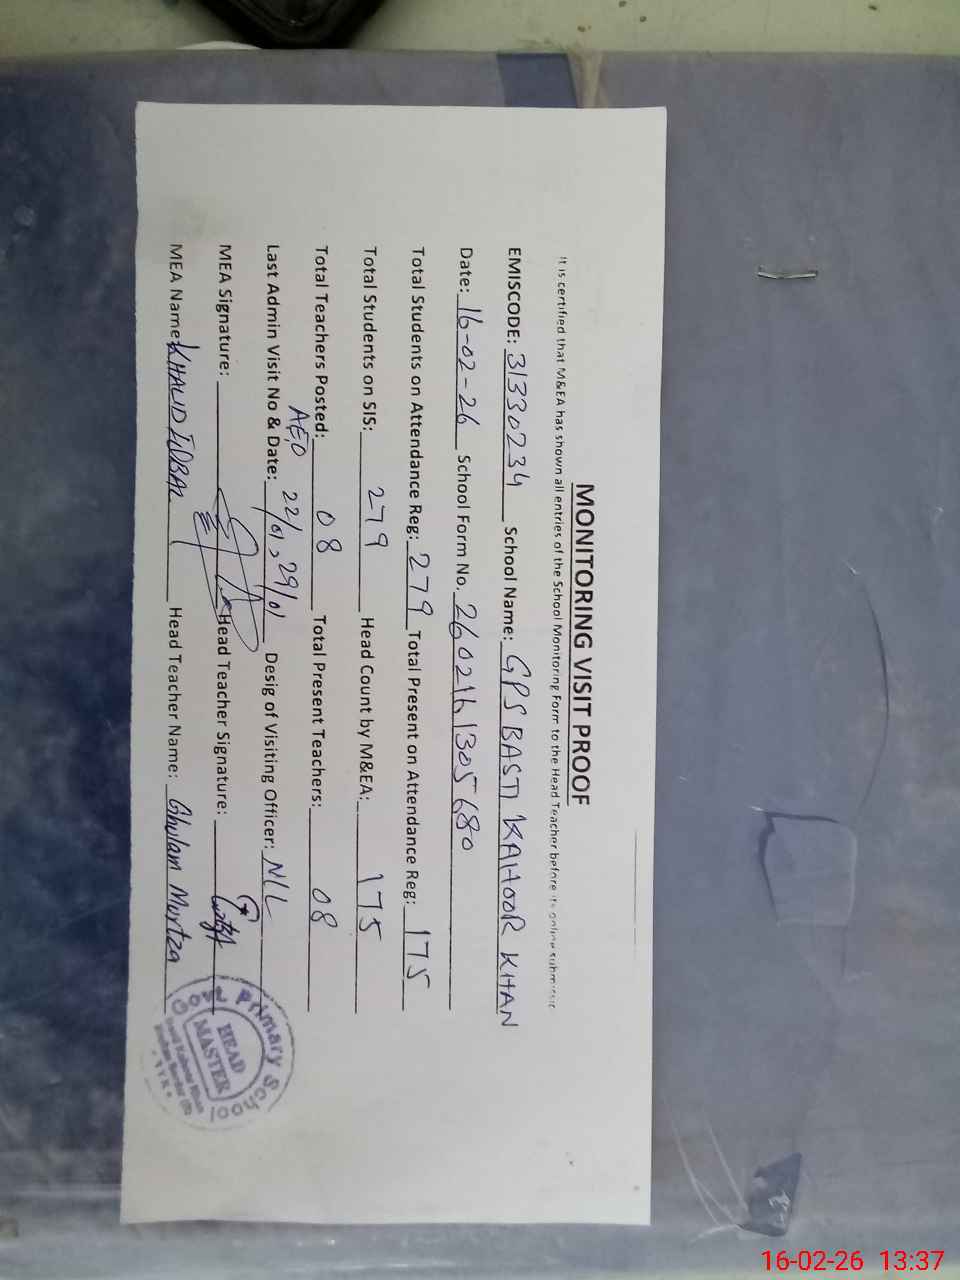 MONITORING VISIT PROOF
It is certified that M&EA has shown all entries of the School Monitoring Form to the Head Teacher before its online submission
EMISCODE: 31330234 School Name: GPS BASTI KAHOOR KHAN
Date: 16-02-26 School Form No. 2602161305680
Total Students on Attendance Reg: 279 Total Present on Attendance Reg: 175
Total Students on SIS: 279 Head Count by M&EA: 175
Total Teachers Posted: 08 Total Present Teachers: 08
AEO
Last Admin Visit No & Date: 22/01, 29/01 Desig of Visiting Officer: NIL
MEA Signature: Head Teacher Signature:
MEA Name: KHALID IQBAL Head Teacher Name: Ghulam Murtza
Govt Primary School
HEAD
MASTER
16-02-26 13:37